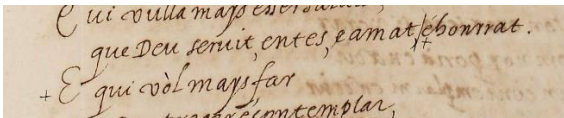 E qui vulla mays esser
que Deu servit, entes, e amat, é honrrat.
+ E qui vòl mays far
contemplar,